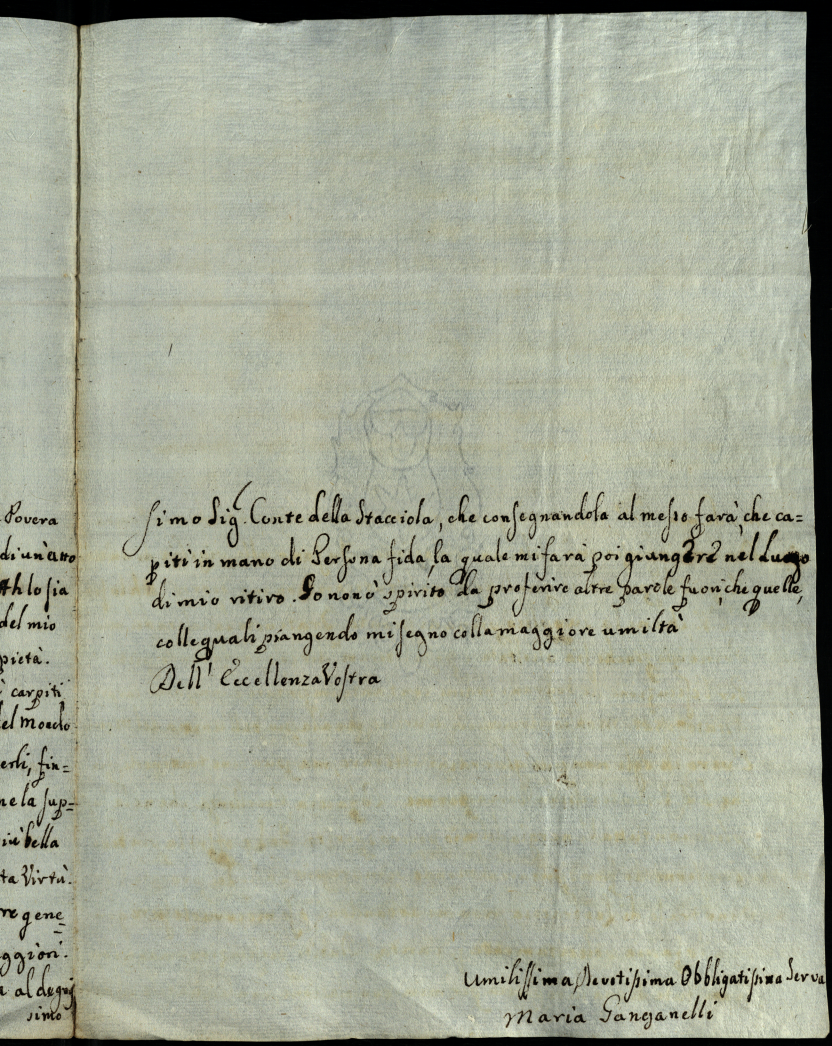 Povera
di un'atto
lo sia
del mio
pietà.
carpiti
del Mondo
erli, fin=
ne la sup=
iù bella
ta Virtù.
re gene=
ggiori.
al degnis
simo
simo Sig.r Conte della Stacciola, che consegnandola al messo farà che ca=
piti in mano di Persona fida, la quale mi farà poi giungere nel Luogo
di mio ritiro. Io non ò spirito da proferire altre parole fuori, che quelle,
colle quali piangendo mi segno colla maggiore umiltà
Dell' Eccellenza Vostra
Umilissima Devotissima Obbligatissima Serva
Maria Ganganelli